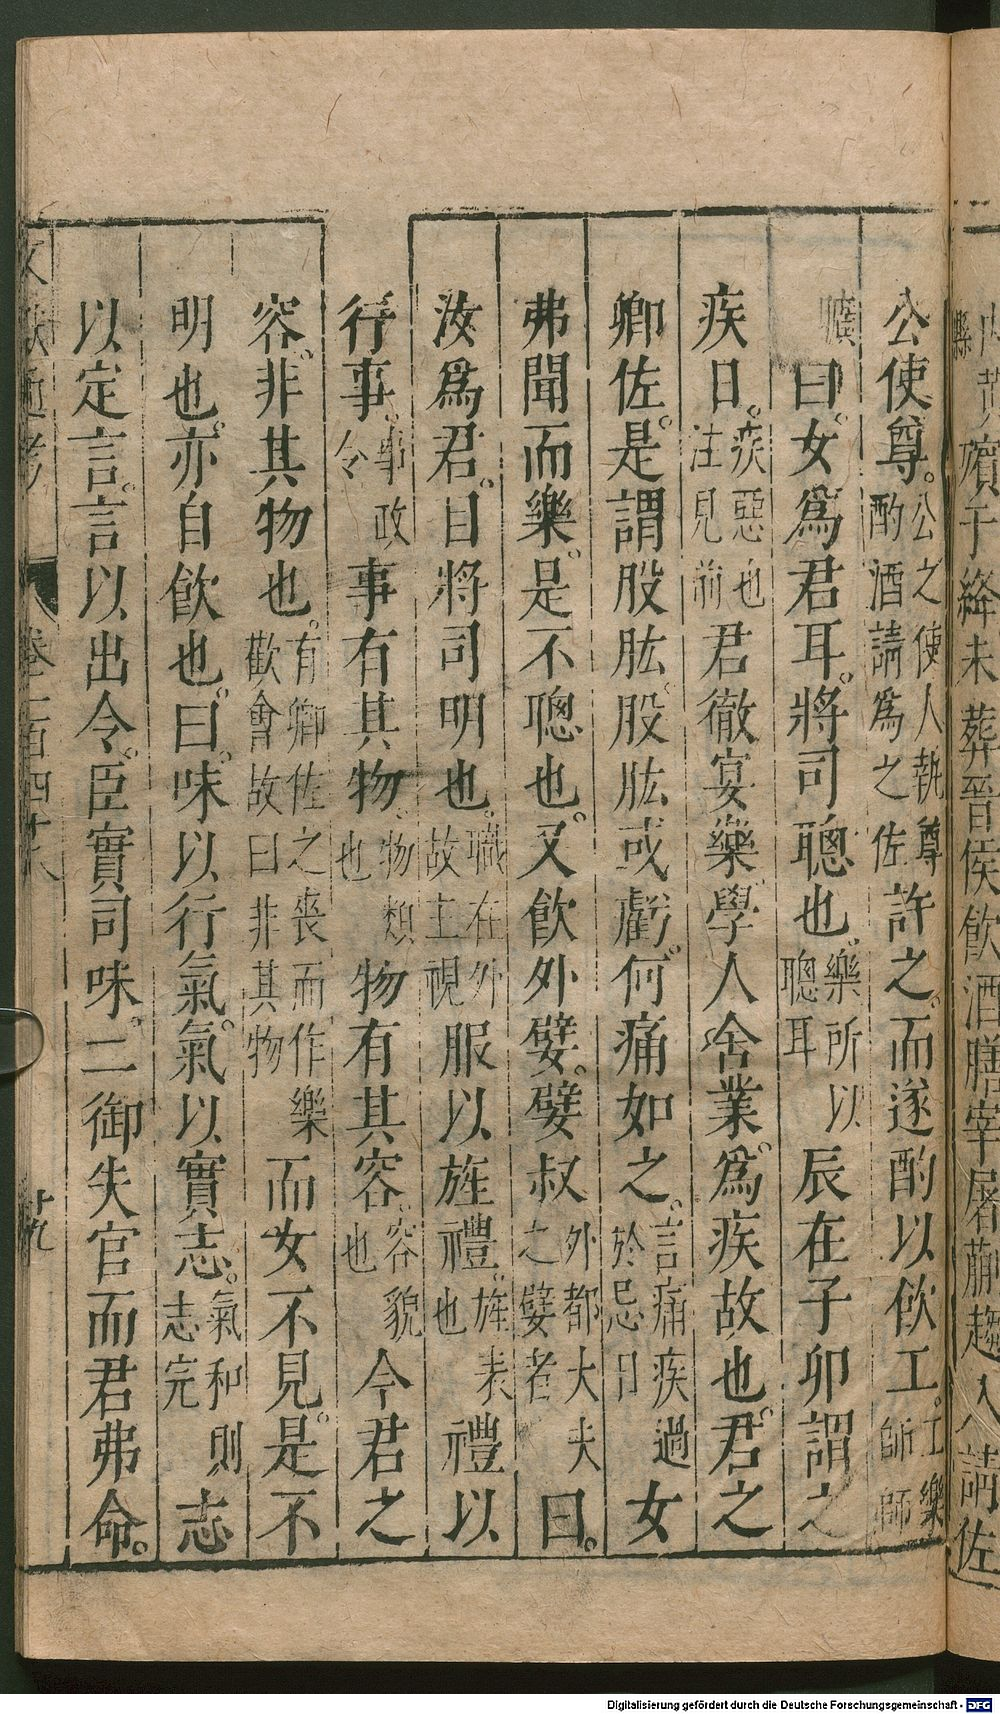 殯于絳未葬晉侯飲酒膳宰屠蒯趨入請佐
公使尊。公之使人執尊酌酒請爲之佐許之。而遂酌以飲工。工樂師師
曠曰。女爲君耳。將司聰也。樂所以聰耳辰在子卯謂之
疾日。疾惡也注見前君徹宴樂學人舍業。爲疾故也。君之
卿佐。是謂股肱。股肱或虧。何痛如之。言痛疾過於忌日女
弗聞而樂。是不聰也。又飲外嬖。嬖叔外都大夫之嬖者曰。
汝爲君。目將司明也。職在外故主視服以旌禮。旌表也禮以
行事。事政令事有其物。物類也物有其容。容貌也今君之
容。非其物也。有卿佐之喪而作樂歡會故曰非其物而女不見。是不
明也。亦自飲也。曰。味以行氣。氣以實志。氣和則志完志
以定言。言以出令。臣實司味。二御失官而君弗命。
文獻通考 卷一百四十八 廿九
Digitalisierung gefördert durch die Deutsche Forschungsgemeinschaft - DFG